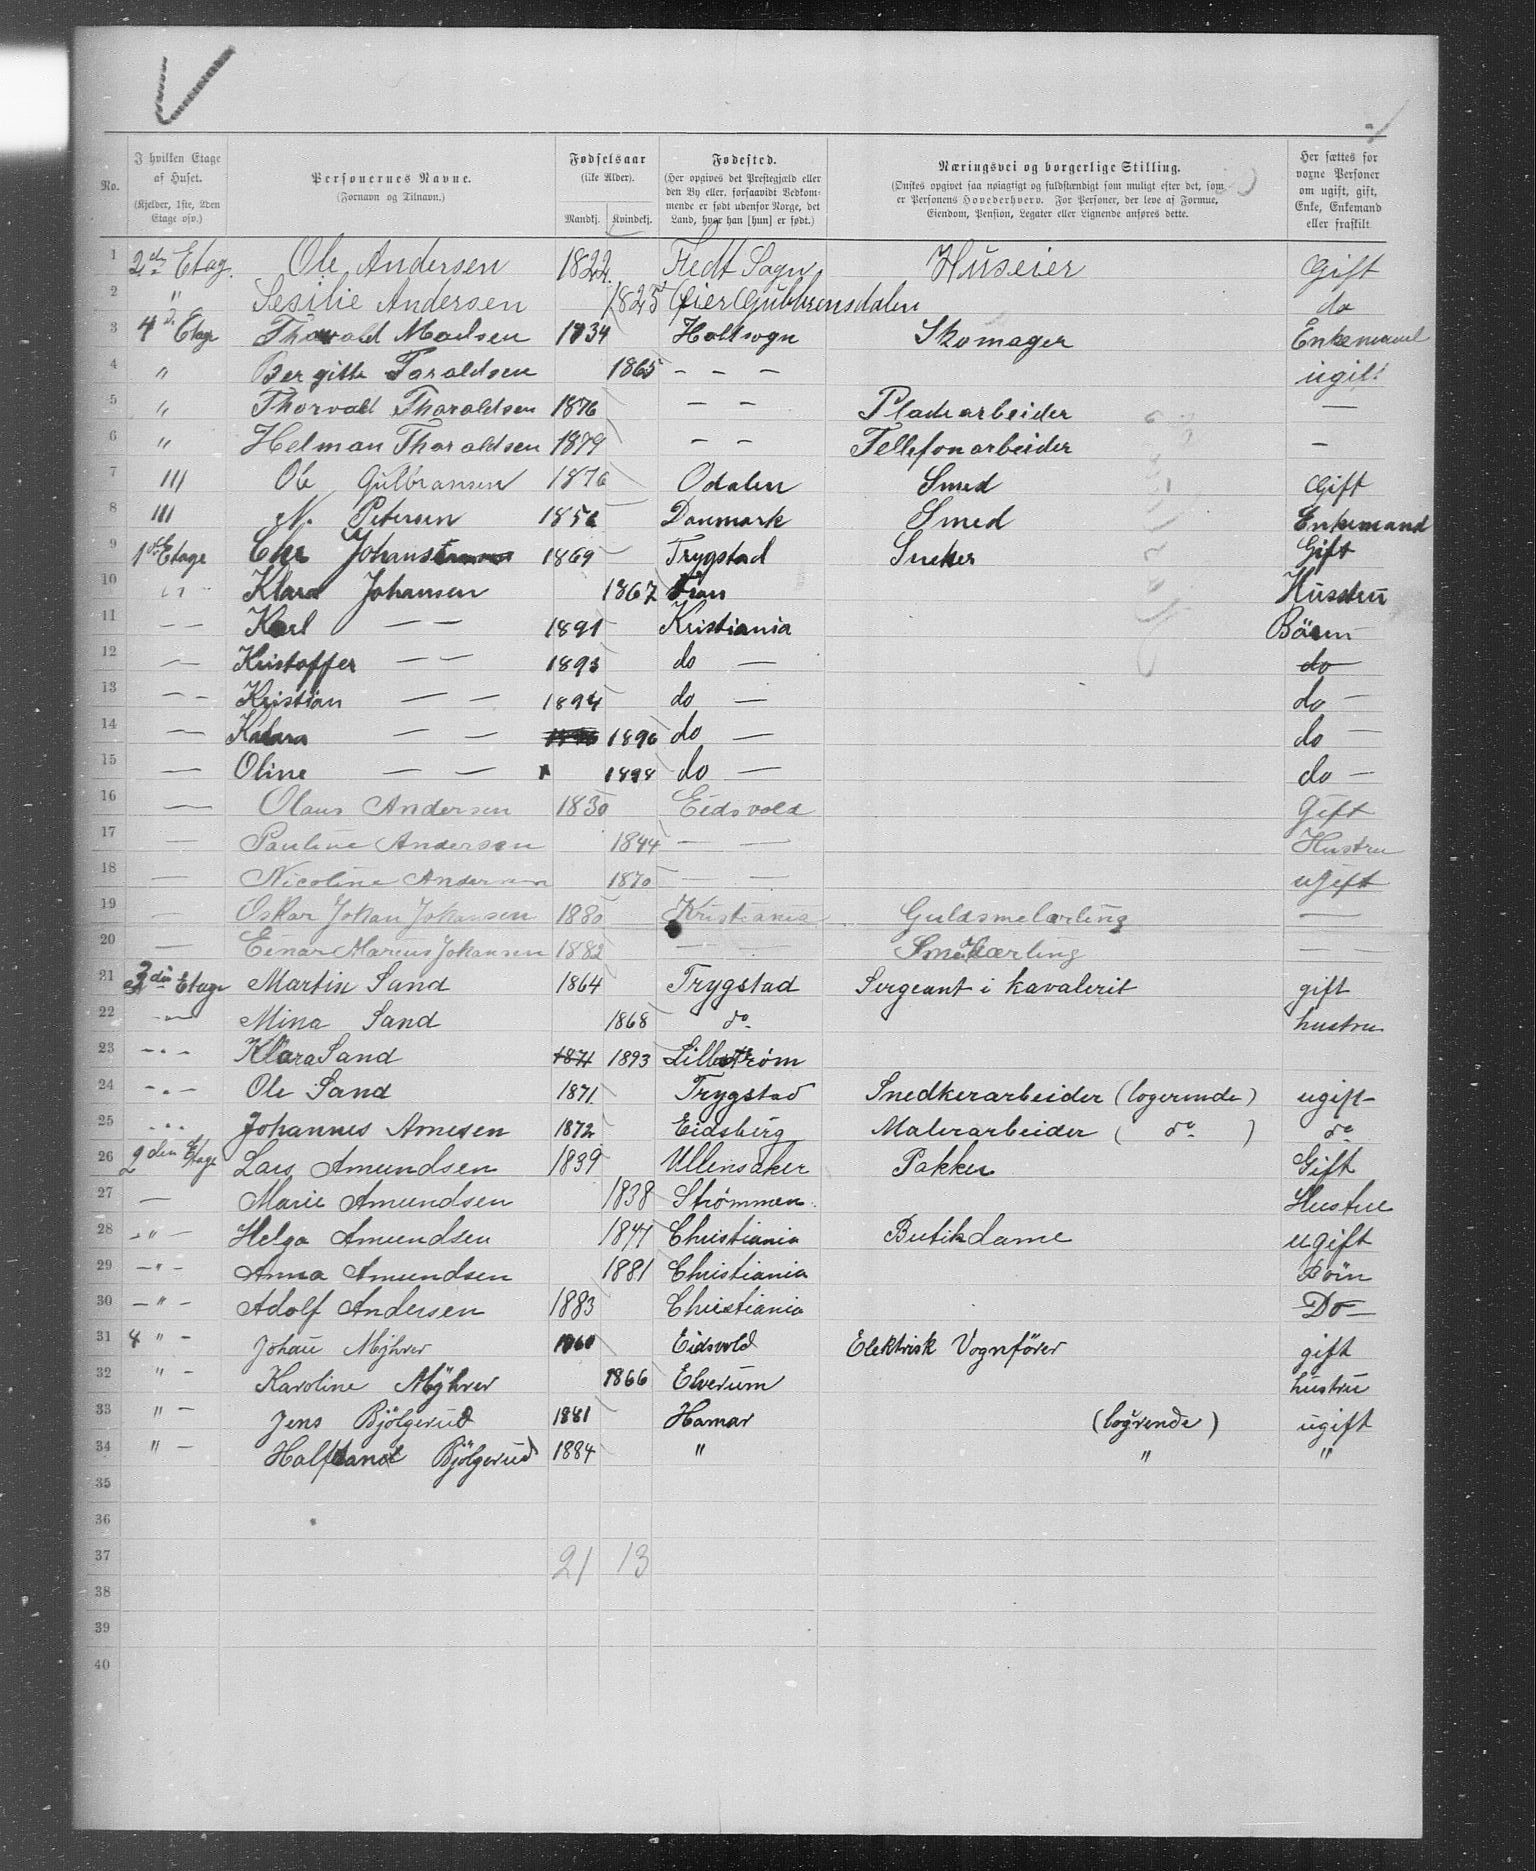 V
No.
I hvilken Etage af Huset. (Kjelder, 1ste, 2den Etage osv.)
Personernes Navne. (Fornavn og Tilnavn.)
Fødselsaar (ikke Alder). Mandkj. Kvindekj.
Fødested. (Her opgives det Prestegjæld eller den By eller, forsaavidt Vedkommende er født udenfor Norge, det Land, hvor han [hun] er født.)
Næringsvei og borgerlige Stilling. (Ønskes opgivet saa nøiagtigt og fuldstændigt som muligt efter det, som er Personens Hovederhverv. For Personer, der leve af Formue, Eiendom, Pension, Legater eller Lignende anføres dette.
Her sættes for voxne Personer om ugift, gift, Enke, Enkemand eller fraskilt
1 2den Etag. Ole Andersen 1822 Fledt Sogn Huseier Gift
2 " Sesilie Andersen 1825 Øier Gubbrensdalen do
3 4de Etage Thorvald Madsen 1834 Holtsogn Skomager Enkemand
4 " Bergitte Taraldsen 1865 - - - ugift
5 " Thorvald Tharaldsen 1876 - - Pladearbeider -
6 " Helman Tharaldsen 1879 - - Tellefonarbeider -
7 III Ole Gulbransen 1876 Odalen Smed Gift
8 III N. Petersen 1856 Danmark Smed Enkemand
9 1ste Etage Chr Johansen 1869 - Trygstad Sneker Gift
10 " Klara Johansen 1867 Hustru
11 - - Karl - - 1891 Kristiania Börn
12 - Kristoffer - - 1893 do - do
13 - - Kristian - - 1894 do - do -
14 - Klara - - 1896 do - do -
15 - Oline - - 1898 do - do -
16 - Olaus Andersen 1830 Eidsvold Gift
17 - Pauline Andersen 1844 - - Hustru
18 - Nicoline Andersen 1870 - - ugift
19 - Oskar Johan Johansen 1880 Kristiania Guldsmelærling -
20 - Einar Marcus Johansen 1882 - - Smedlærling -
21 3die Etage Martin Sand 1864 Trygstad Sergeant i kavaleriet gift
22 -"- Mina Sand 1868 do hustru
23 -"- Klara Sand 1871 1893 Lillestrøm
24 -"- Ole Sand 1871 Trygstad Snedkerarbeider (logerende) ugift
25 -"- Johannes Arnesen 1872 Eidsberg Malerarbeider ( do ) do
26 2den Etage Lars Amundsen 1839 Ullensaker Pakker Gift
27 - Marie Amundsen 1838 Strømmen Hustru
28 -"- Helga Amundsen 1877 Christiania Butikdame ugift
29 -"- Anna Amundsen 1881 Christiania Börn
30 -"- Adolf Andersen 1883 Christiania Do -
31 4 " - Johan Mÿhrer 1860 Eidsvold Elektrisk Vognförer gift
32 " - Karoline Mÿhrer 1866 Elverum hustru
33 " - Jens Bjölgerud 1881 Hamar (logerende) ugift
34 " - Halfdand Bjölgerud 1884 " " "
35
36
37 21 13
38
39
40